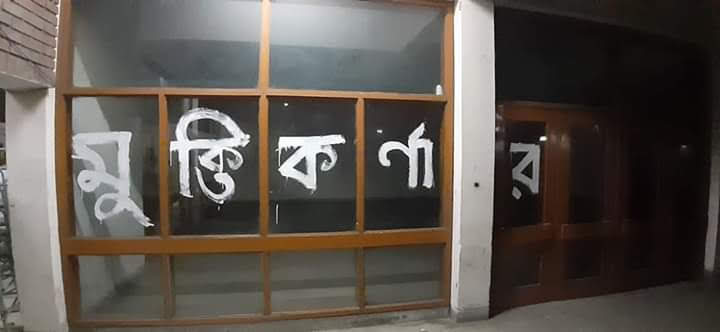 মুক্তিকর্ণার